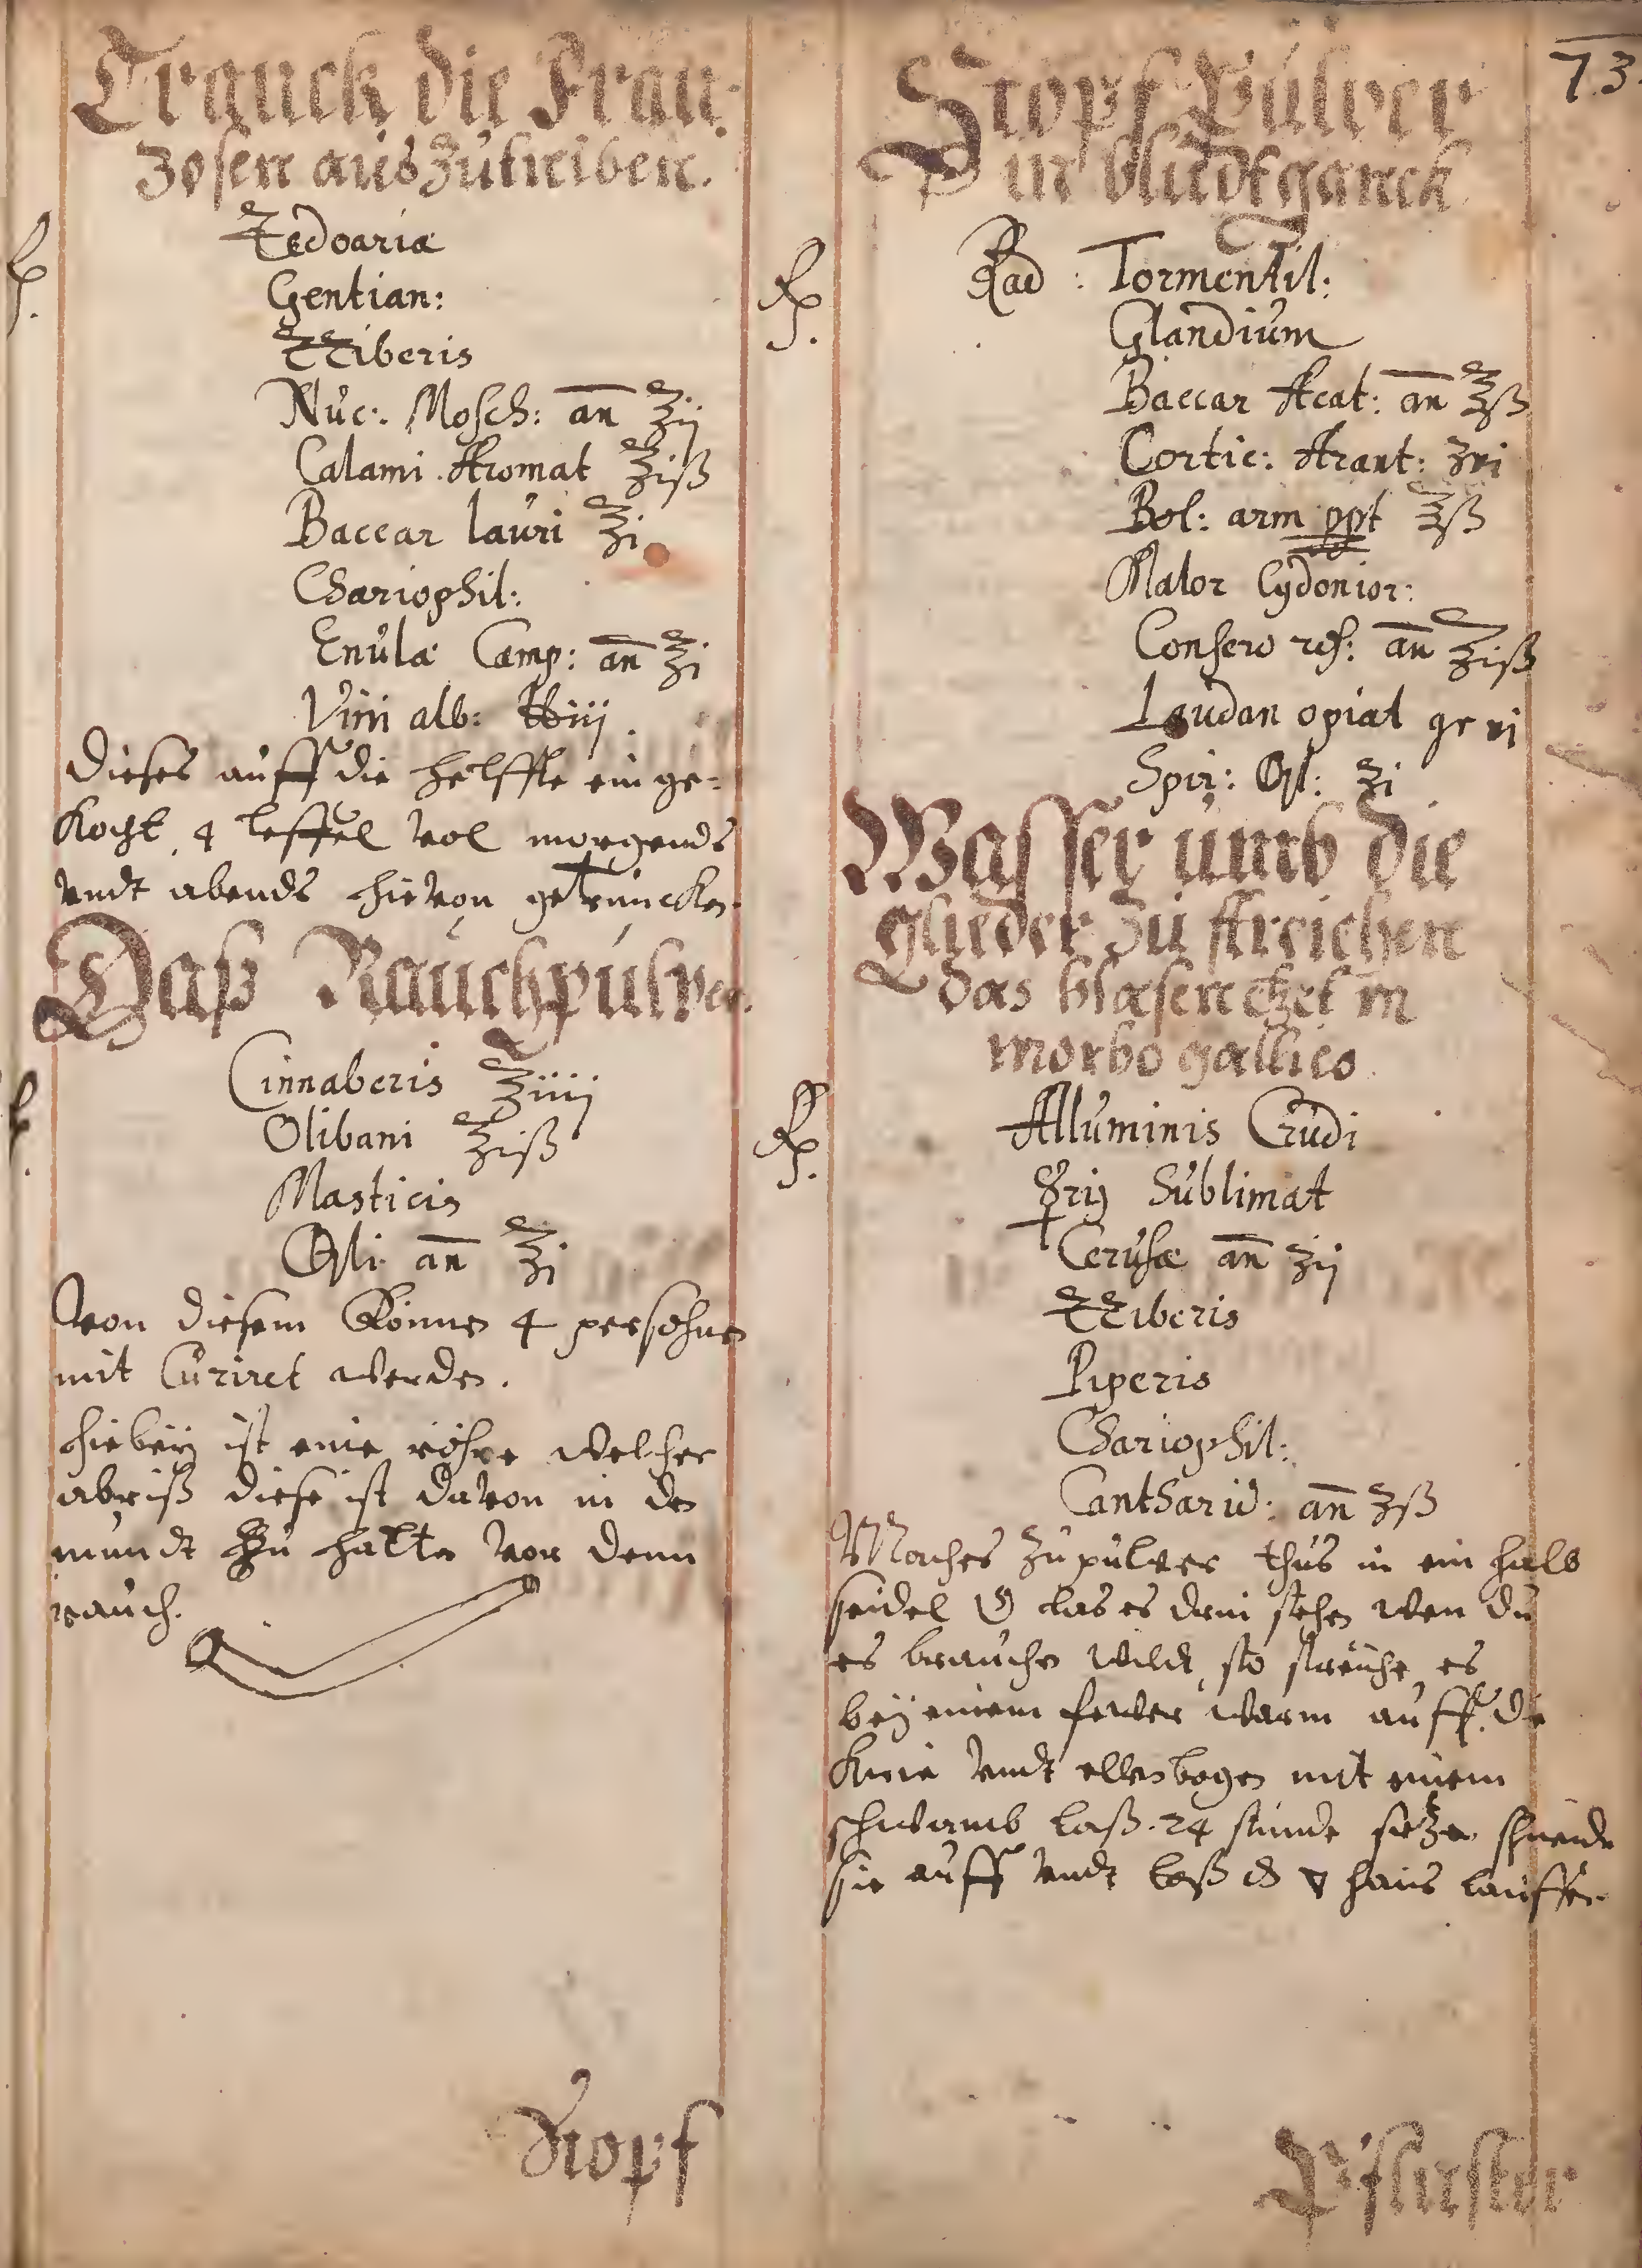 Tranck die Fran-
zosen auszutreiben.
℞.
Zedoariæ
Gentian:
Zziberis
Nuc: Mosch: an̄ ℥ij
Calami Aromat ℥iß
Baccar lauri ℥i
Chariophil:
Enulæ Camp: an̄ ℥j
Vini alb: ℔iij
dieses auff die helffte ein ge-
kocht 4 leffel vol morgends
vndt abends hievon getruncken.
Daß Rauchpulver.
℞.
Cinnaberis ℥iiij
Olibani ℥iß
Masticis
an̄ ℥j
Von diesem können 4 persohnen
mit Curiret werden.
hiebeÿ ist eine röhre welcher
abriß diese ist davon in den
mundt zu halten vor denn
rauch.
Stopf
73.
Stopf Pulver
in bludtganck
℞.
Rad: Tormentil:
Glandium
Baccar Acat: an̄ ℥ß
Cortic: Arant: ʒvi
Bol: arm ppt ℥ß
Malor Cydonior:
Conserv ros: an̄ ℥iß
Laudan opiat gr vj
Spir: ʒi
Wasser umb die
glieder zu streichen
das blasen in
morbo gallico
℞.
Alluminis Crudi
☿rij Sublimat
Cerusæ an̄ ʒij
Zziberis
Piperis
Chariophil:
Cantharid: an̄ ʒß
Maches zu pulver thus in ein halb
seidel las es drin stehen wen du
es brauchen wildt so streiche es
beÿ einem fewer warm auff die
knie vndt ellenbogen mit einem
schwamb laß 24 stunde sitzen schneide
sie auff vndt laß haus lauffen
Pflaster